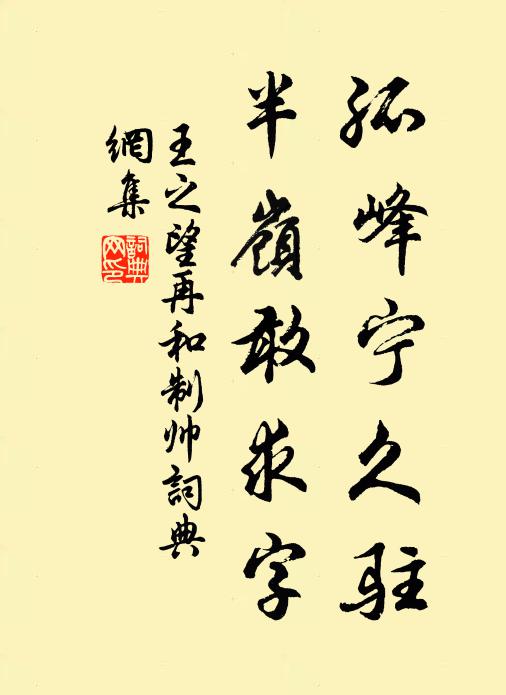 孤峰宁久驻
半嶺敢求字
王之望再和制帅詞典
網集
詞典
网印